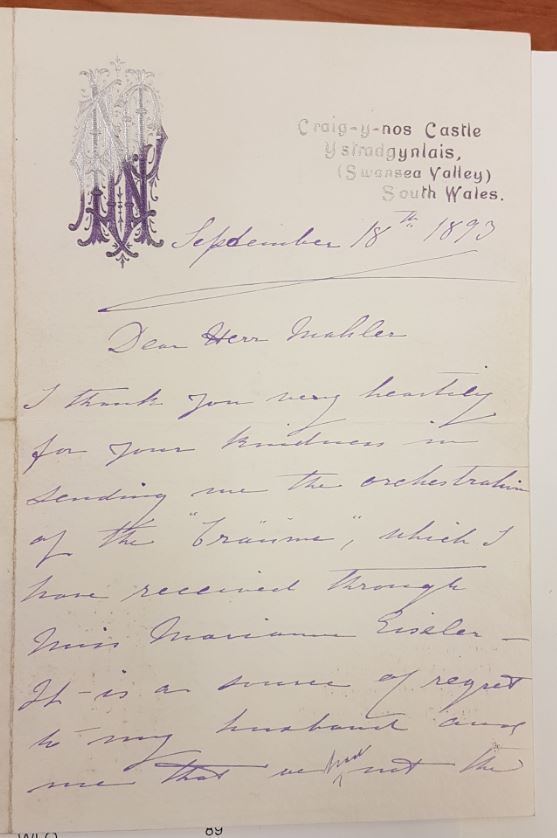 Craig-y-nos Castle
Ystradgynlais,
(Swansea Valley)
South Wales.
September 18th 1893
Dear Herr Mahler
I thank you very heartily
for your kindness in
sending me the orchestration
of the "Träume", which I
have received through
Miss Marianne Eissler –
It is a source of regret
to my husband and
me that we had not the
89